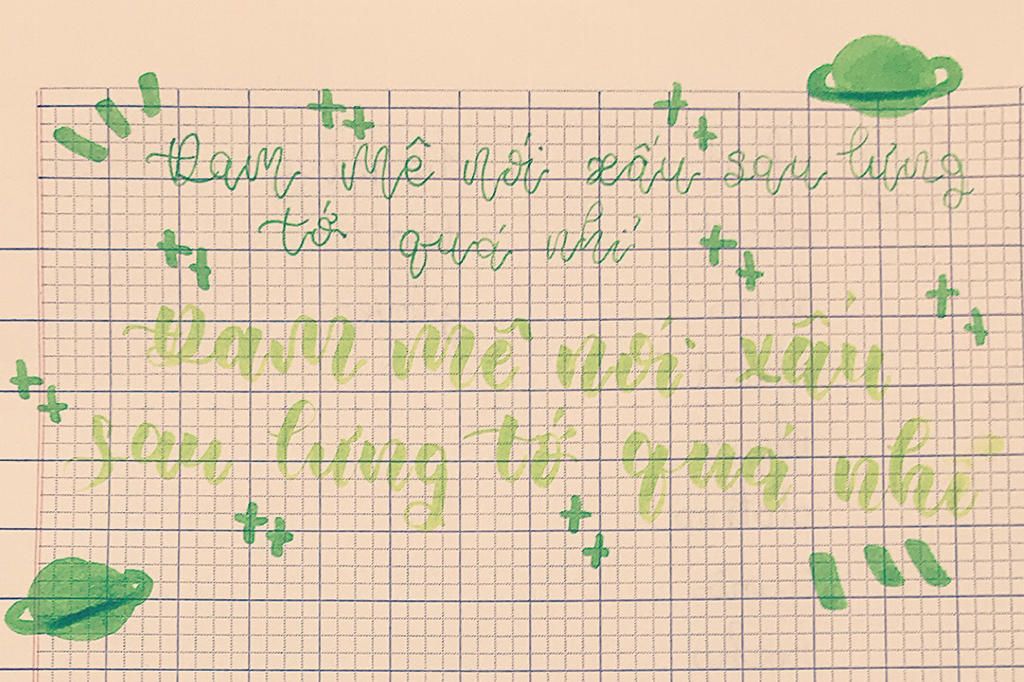 Đam mê nói xấu sau lưng
tớ quá nhỉ
Đam mê nói xấu
sau lưng tớ quá nhỉ